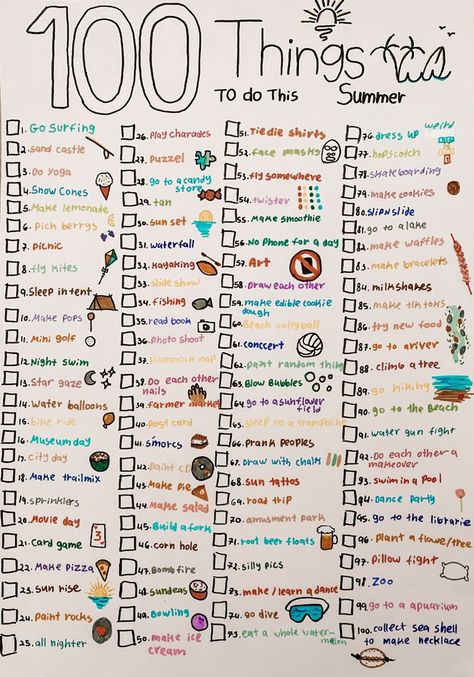 100 Things
TO do This Summer
1. Go Surfing
2. sand castle
3. Do yoga
4. Snow Cones
5. Make lemonade
6. Pick berrys
7. Picnic
8. fly kites
9. Sleep in tent
10. Make Pops
11. Mini golf
12. Night swim
13. Star gaze
14. Water balloons
15. bike ride
16. Museum day
17. city day
18. Make trailmix
19. sprinklers
20. Movie day
21. card game
22. Make Pizza
23. sun rise
24. Paint rocks
25. all nighter
26. Play charades
27. Puzzel
28. go to a candy
store
29. tan
30. sun set
31. waterfall
32. Kayaking
33. slide show
34. fishing
35. read book
36. Photo shoot
37. Hammock nap
38. Do each other
nails
39. farmer market
40. Post card
41. S'morcs
42. Paint CD
43. Make Pie
44. Make salad
45. Build a fork
46. corn hole
47. Bomb fire
48. sundeas
49. Bowling
50. make ice
cream
51. Tiedie shirts
52. face masks
53. fly somewhere
54. twister
55. Make smoothie
56. No Phone for a day
57. Art
58. Draw each other
59. make edible cookie
dough
60. Beach vollyball
61. conccert
62. Paint random thing
63. Blow Bubbles
64. go to a sunflower
field
65. sleep no a trampoline
66. Prank peoples
67. Draw with chalk
68. sun tattos
69. road trip
70. amusment park
71. root beer floats
72. silly pics
73. make / learn a dance
74. go dive
75. eat a whole water-
melon
76. dress up weird
77. hopscotch
78. skate boarding
79. make cookies
80. slip n slide
81. go to a lake
82. make waffles
83. make bracelets
84. milkshakes
85. make tiktoks
86. try new food
87. go to a river
88. climb a tree
89. go hiking
90. go to the Beach
91. water gun fight
92. Do each other a
makeover
93. swim in a Pool
94. Dance party
95. go to the librarie
96. Plant a flowe/tree
97. Pillow fight
98. Zoo
99. go to a apuarium
100. collect sea shell
to make necklace